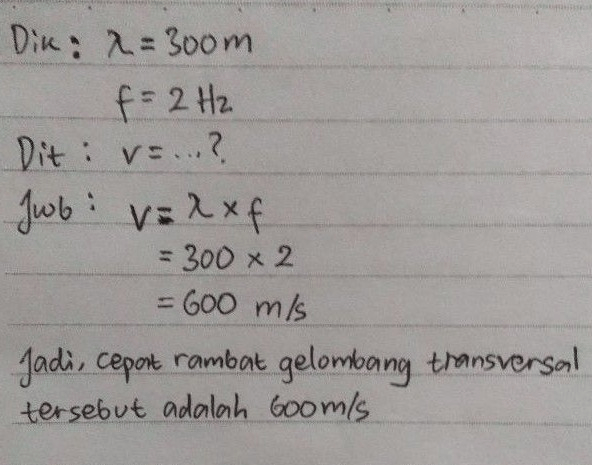 Dik : λ = 300 m
f = 2 Hz
Dit : v = ...?
Jwb : v = λ × f
= 300 × 2
= 600 m/s
Jadi, cepat rambat gelombang transversal
tersebut adalah 600 m/s